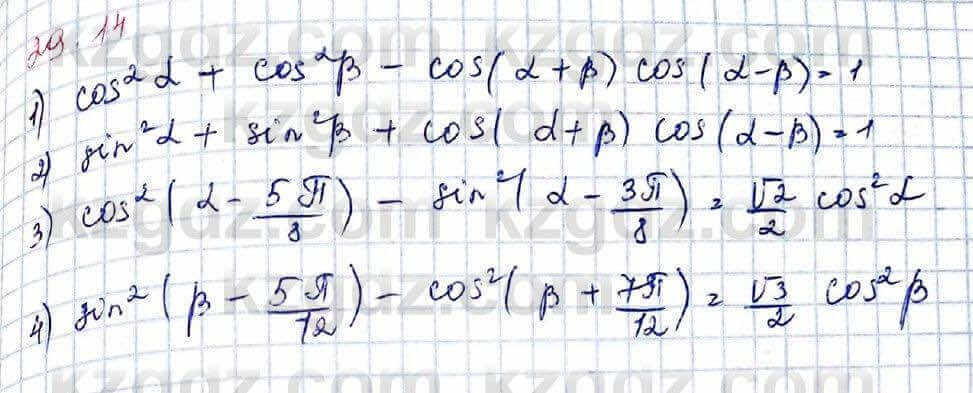 39.14
1) cos²α + cos²β - cos(α+β) cos(α-β) = 1
2) sin²α + sin²β + cos(α+β) cos(α-β) = 1
3) cos²(α - 5π/8) - sin²(α - 3π/8) = √2/2 cos²α
4) sin²(β - 5π/12) - cos²(β + 7π/12) = √3/2 cos²β
kzgdz.com